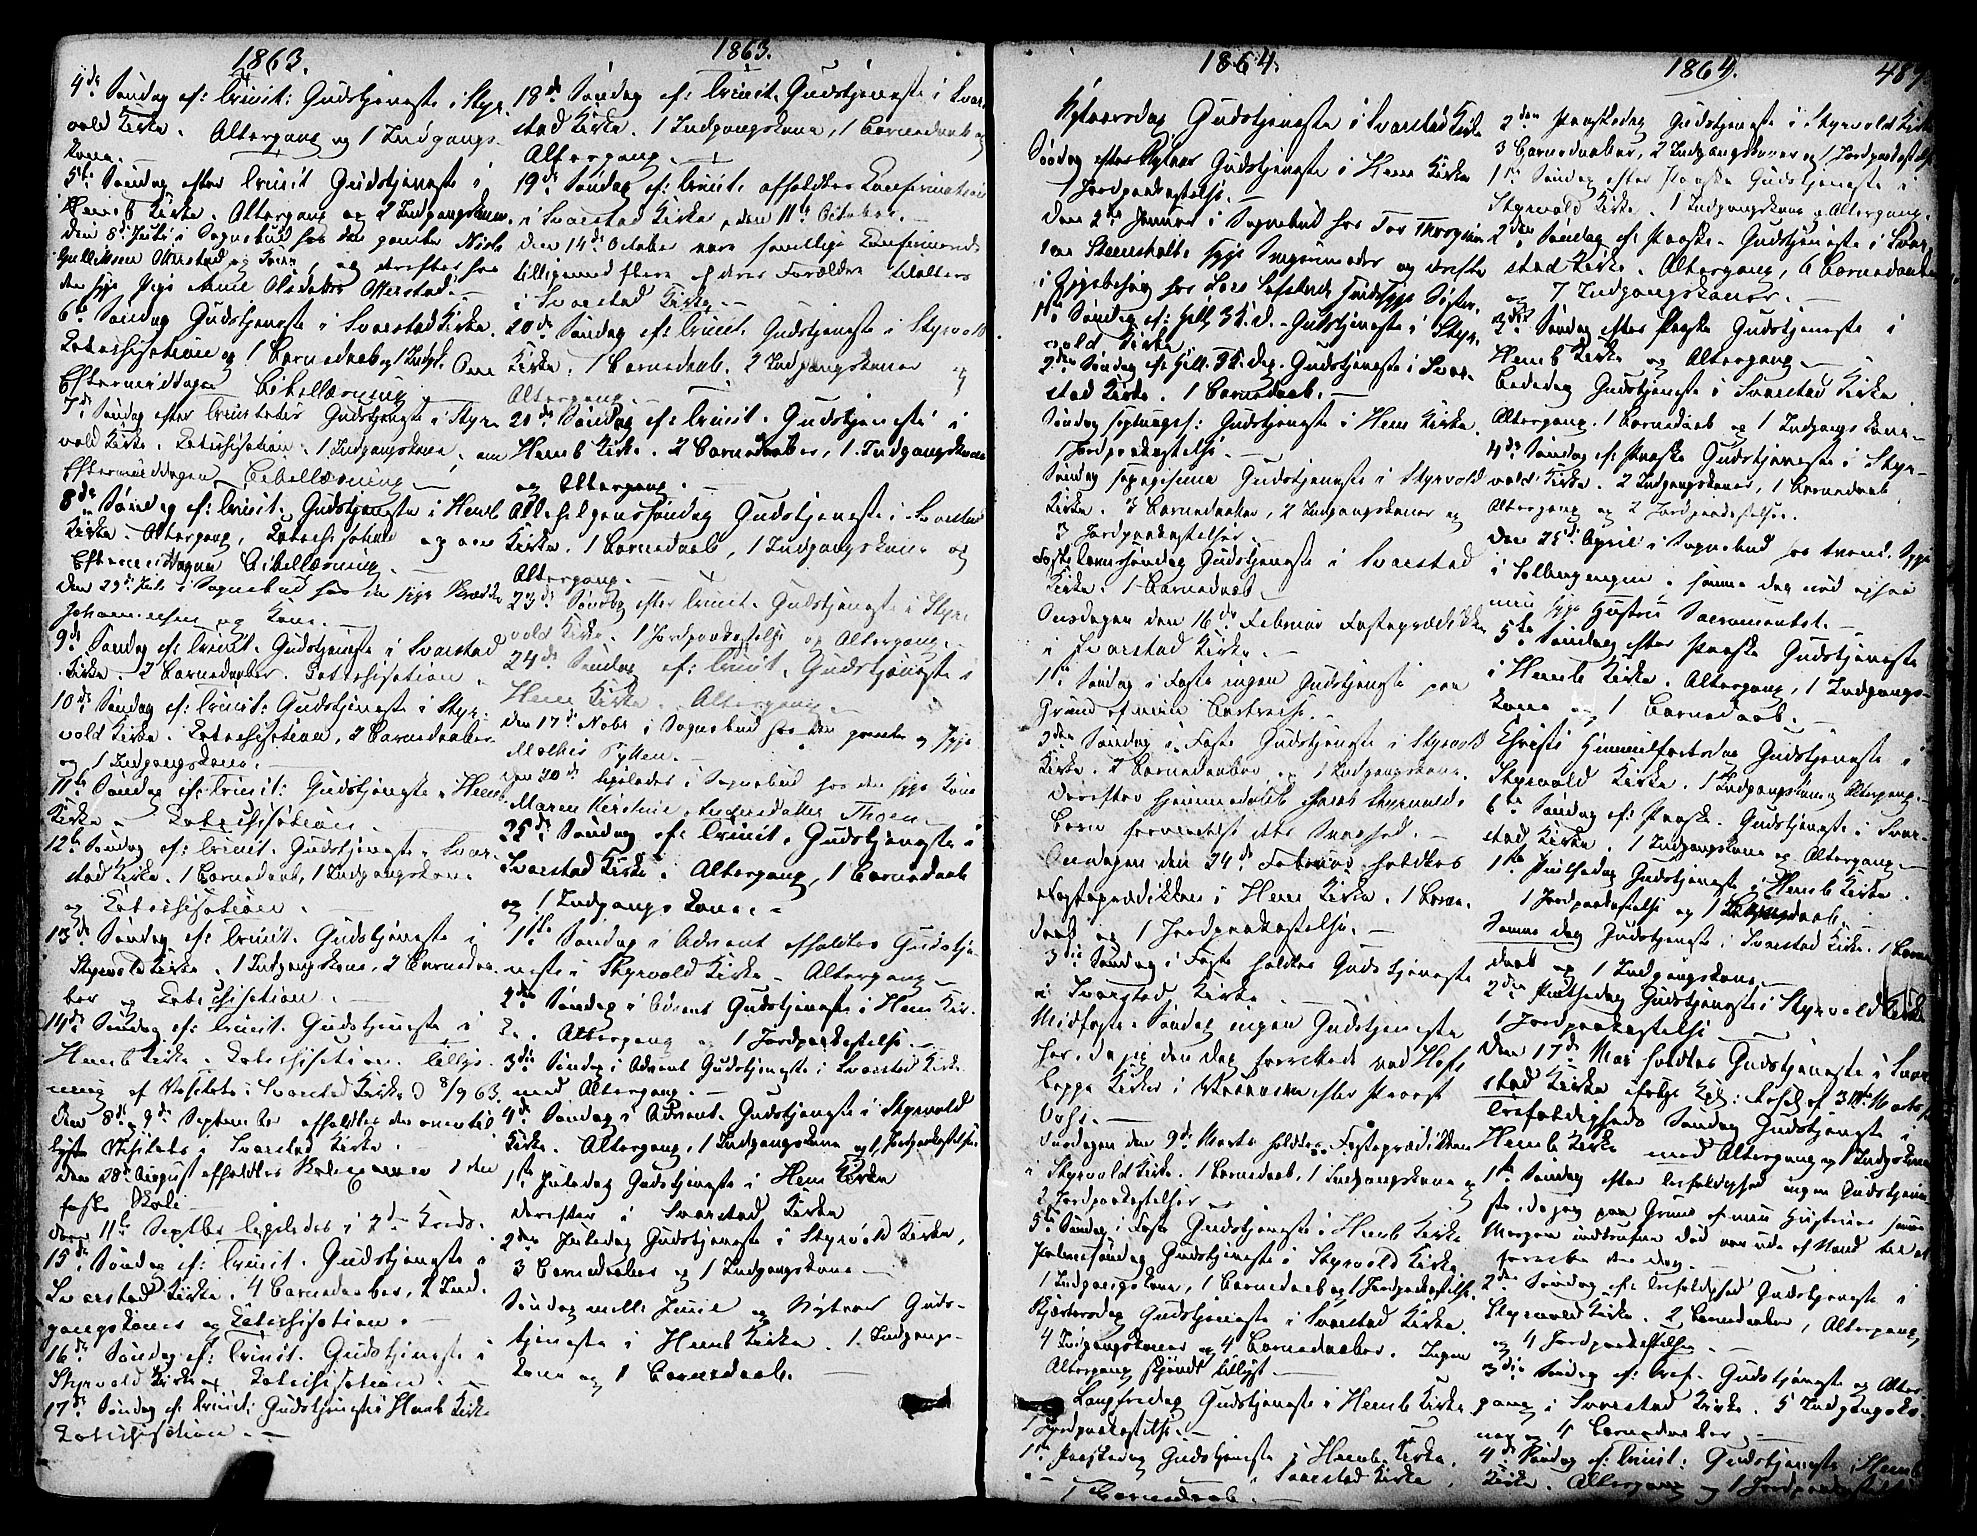 1863.
4de Søndag ef: Trinit: Gudstjeneste i Styr-
vold Kirke. Altergang og 1 Indgangs-
kone.
5te Søndag efter Trinit Gudstjeneste i
Hems Kirke. Altergang og 2 Indgangskoner.
Den 8de Juli i Sognebud hos den gamle Niels
Gulliksen Otterstad og Kone, og derefter hos
den syge Pige Anne Olsdatter Otterstad.
6te Søndag Gudstjeneste i Svarstad Kirke.
Catechisation og 1 Barnedaab og 1 Indgk. Om
Eftermiddagen Bibellæsning.
7de Søndag efter Trinitatis Gudstjeneste i Styr-
vold Kirke. Catechisation. 1 Indgangskone, om
Eftermiddagen Bibellæsning.
8de Søndag ef: Trinit: Gudstjeneste i Hems
Kirke. Altergang, Catechisation og om
Eftermiddagen Bibellæsning.
Den 29de Juli i Sognebud hos den syge
Johannesen og Kone.
9de Søndag ef: Trinit. Gudstjeneste i Svarstad
Kirke. 2 Barnedaaber. Catechisation.
10de Søndag ef: Trinit: Gudstjeneste i Styr-
vold Kirke. Catechisation, 2 Barnedaaber
og 1 Indgangskone.
11te Søndag ef: Trinit: Gudstjeneste i Hems
Kirke. Catechisation.
12te Søndag ef: Trinit. Gudstjeneste i Svar-
stad Kirke. 1 Barnedaab, 1 Indgangskone
og Catechisation.
13de Søndag ef: Trinit. Gudstjeneste i
Styrvold Kirke. 1 Indgangskone, 2 Barnedaa-
ber og Catechisation.
14de Søndag ef: Trinit. Gudstjeneste i
Hems Kirke. Catechisation. Tillys-
ning af Visitats i Svarstad Kirke d 8/9 63.
Den 8de og 9de September afholdtes den ovenfor til-
lyste Visitats i Svarstad Kirke.
Den 28de August afholdtes Skoleexamen i den
faste Skole.
Den 11te Septbr ligeledes i 2den Kreds.
15de Søndag ef: Trinit. Gudstjeneste i
Svarstad Kirke. 4 Barnedaaber, 2 Ind-
gangskoner og Catechisation.
16de Søndag ef: Trinit. Gudstjeneste i
Styrvold Kirke og Catechisation.
17de Søndag ef: Trinit: Gudstjeneste i Hems Kirke
Catechisation.
1863.
18de Søndag ef: Trinit. Gudstjeneste i Svar-
stad Kirke. 1 Indgangskone, 1 Barnedaab og
Altergang.
19de Søndag ef: Trinit. afholdtes Confirmation
i Svarstad Kirke, den 11te October.
Den 14de October vare samtlige Confirmander
tilligemed flere af deres Forældre tilalters
i Svarstad Kirke.
20de Søndag ef: Trinit. Gudstjeneste i Styrvold
Kirke. 1 Barnedaab. 2 Indgangskoner og
Altergang.
21de Søndag ef: Trinit. Gudstjeneste i
Hems Kirke. 2 Barnedaaber, 1 Indgangskone
og Altergang.
Allehelgenssøndag Gudstjeneste i Svarstad
Kirke. 1 Barnedaab, 1 Indgangskone og
Altergang.
23de Søndag efter Trinit. Gudstjeneste i Styr-
vold Kirke. 1 Jordpaakastelse og Altergang.
24de Søndag ef: Trinit. Gudstjeneste i
Hem Kirke. Altergang.
Den 17de Nobr i Sognebud hos den gamle og syge
Mathis
Den 20de ligeledes i Sognebud hos den syge Kone
Maren Kirstine Andersdatter Thoen.
25de Søndag ef: Trinit. Gudstjeneste i
Svarstad Kirke. Altergang, 1 Barnedaab
og 1 Indgangskone.
1ste Søndag i Advent afholdtes Gudstje-
neste i Styrvold Kirke. Altergang.
2den Søndag i Advent Gudstjeneste i Hem Kir-
ke. Altergang og 1 Jordpaakastelse.
3die Søndag i Advent Gudstjeneste i Svarstad Kirke
med Altergang.
4de Søndag i Advent. Gudstjeneste i Styrvold
Kirke. Altergang, 1 Indgangskone og 1 Jordpaakastelse.
1ste Juledag Gudstjeneste i Hem Kirke
derefter i Svarstad Kirke
2den Juledag Gudstjeneste i Styrvold Kirke,
3 Barnedaaber og 1 Indgangskone.
Søndag mell: Juul og Nytaar Guds-
tjeneste i Hems Kirke. 1 Indgangs-
kone og 1 Barnedaab.
1864.
Nytaarsdag Gudstjeneste i Svarstad Kirke
Søndag efter Nytaar Gudstjeneste i Hem Kirke
1 Jordpaakastelse.
Den 2den Januar i Sognebud hos Tor
paa Steensholt syge og derefter
i hos Lars syge Søster.
1ste Søndag ef: Hell: 3 K. d. Gudstjeneste i Styr-
vold Kirke.
2den Søndag ef: Hell. 3 K. dag. Gudstjeneste i Svar-
stad Kirke. 1 Barnedaab.
Søndag Septuages: Gudstjeneste i Hem Kirke.
1 Jordpaakastelse.
Søndag Sexagesima Gudstjeneste i Styrvold
Kirke. 3 Barnedaaber, 2 Indgangskoner og
3 Jordpaakastelser.
Fastelavnssøndag Gudstjeneste i Svarstad
Kirke. 1 Barnedaab.
Onsdagen den 16de Februar Fasteprædiken
i Svarstad Kirke.
1ste Søndag i Faste ingen Gudstjeneste paa
Grund af min Bortreise.
2den Søndag i Faste Gudstjeneste i Styrvold
Kirke. 2 Barnedaaber og 1 Indgangskone.
Derefter hjemmedøbt Styrvolds
Barn
Onsdagen den 24de Februar holdtes
Fasteprædiken i Hem Kirke. 1 Barne-
daab og 1 Jordpaakastelse.
3die Søndag i Faste holdtes Gudstjeneste
i Svarstad Kirke
Midfaste Søndag ingen Gudstjeneste
her, da jeg den Dag forrettede ved
Kirke i efter Provst
Onsdagen den 9de Marts holdtes Fasteprædiken
i Styrvold Kirke. 1 Barnedaab, 1 Indgangskone og
2 Jordpaakastelser.
5te Søndag i Faste Gudstjeneste i Hems Kirke
Palmesøndag Gudstjeneste i Styrvold Kirke
1 Indgangskone, 1 Barnedaab og 1 Jordpaakastelse.
Skjærtorsdag Gudstjeneste i Svarstad Kirke.
4 Indgangskoner og 4 Barnedaaber. Ingen
Altergang skjøndt tillyst.
Langfredag Gudstjeneste i Hems Kirke.
1 Jordpaakastelse.
1ste Paaskedag Gudstjeneste i Hems Kirke.
i Svarstad Kirke.
1 Barnedaab.
1864.
487
2den Paaskedag Gudstjeneste i Styrvold Kirke
3 Barnedaaber, 2 Indgangskoner og 1 Jordpaakastelse
1ste Søndag efter Paaske Gudstjeneste i
Styrvold Kirke. 1 Indgangskone og Altergang.
2den Søndag ef: Paaske. Gudstjeneste i Svar-
stad Kirke. Altergang, 6 Barnedaaber
og 7 Indgangskoner.
3die Søndag efter Paaske Gudstjeneste i
Hems Kirke og Altergang.
Bededag Gudstjeneste i Svarstad Kirke
Altergang. 1 Barnedaab og 1 Indgangskone.
4de Søndag ef: Paaske Gudstjeneste i Styr-
vold Kirke. 2 Indgangskoner, 1 Barnedaab,
Altergang og 2 Jordpaakastelser.
Den 25de April i Sognebud hos syge
i samme Dag nød ogsaa
min syge Hustru Sacramentet.
5te Søndag efter Paaske Gudstjeneste
i Hems Kirke. Altergang, 1 Indgangs-
kone og 1 Barnedaab.
Christi Himmelfartsdag Gudstjeneste i
Styrvold Kirke. 1 Indgangskone og Altergang.
6te Søndag ef: Paaske. Gudstjeneste i Svar-
stad Kirke. 1 Indgangskone og Altergang.
1ste Pintsedag Gudstjeneste i Hems Kirke.
1 Jordpaakastelse og 1 Barnedaab.
Samme Dag Gudstjeneste i Svarstad Kirke. 1 Barne-
daab og 1 Indgangskone.
2den Pintsedag Gudstjeneste i Styrvold Kirke
1 Jordpaakastelse
Den 17de Mai holdtes Gudstjeneste i Svar-
stad Kirke ifølge Kgl: Resol. af
Trefoldigheds Søndag Gudstjeneste i
Hems Kirke med Altergang og 1 Indgkone
1ste Søndag efter Trefoldighed ingen Gudstjene-
ste, da jeg paa Grund af min Hustrues samme
Morgen indtrufne Død var ude af Stand til at
forrette den Dag.
2den Søndag ef: Trefoldighed Gudstjeneste i
Styrvold Kirke. 2 Barnedaaber, Altergang
og 4 Jordpaakastelser
3die Søndag ef: Tref. Gudstjeneste og Alter-
gang i Svarstad Kirke. 5 Indgangsko-
ner og 4 Barnedaaber.
4de Søndag ef: Trinit: Gudstjeneste i Hems
Kirke. Altergang og 1 Jordpaakastelse